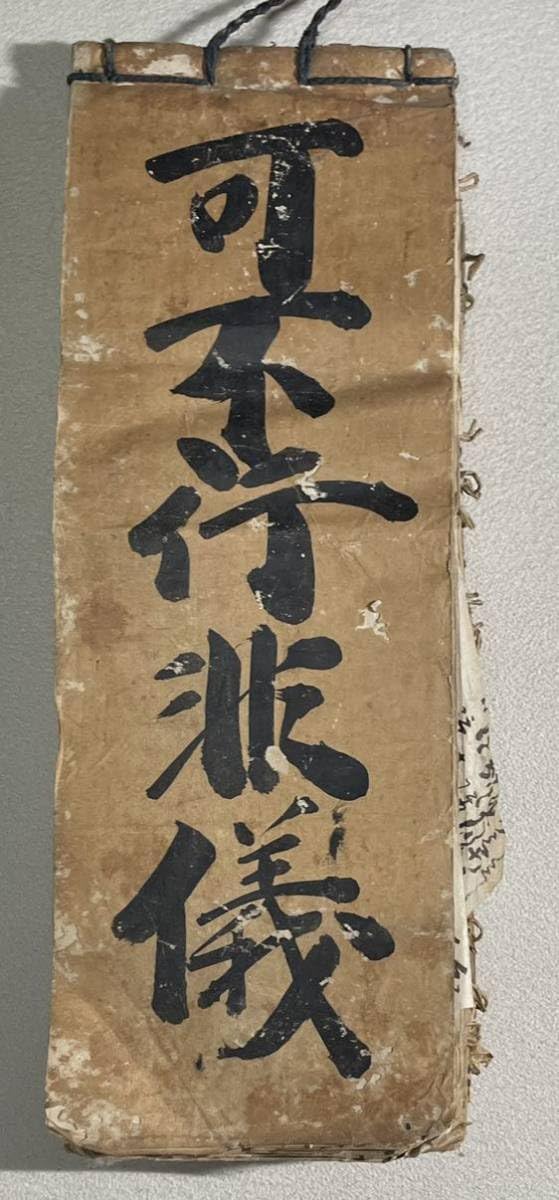 可不行非儀